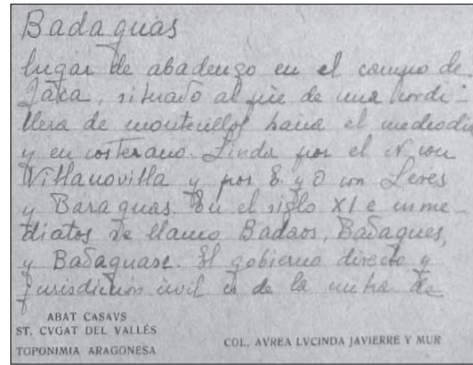 Badaguas
lugar de abadengo en el campo de
Jaca, situado al pie de una cordi-
llera de montecillos hacia el mediodia
y en costerano. Linda por el N con
Villanovilla y por E y O con Leres
y Baraguas En el siglo XI e inme-
diatos se llamo Badaos, Badagues,
y Badaguase. El gobierno directo y
jurisdicion civil es de la mitra de
ABAT CASAVS
ST. CVGAT DEL VALLÉS
TOPONIMIA ARAGONESA
COL. AVREA LVCINDA JAVIERRE Y MUR